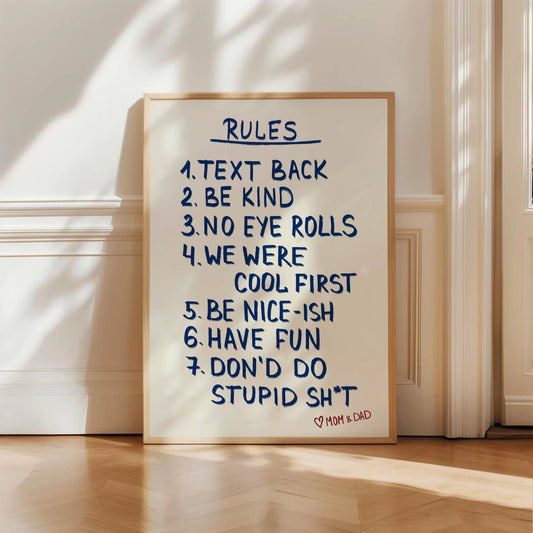 RULES
1. TEXT BACK
2. BE KIND
3. NO EYE ROLLS
4. WE WERE
COOL FIRST
5. BE NICE-ISH
6. HAVE FUN
7. DON'D DO
STUPID SH*T
♡ MOM & DAD